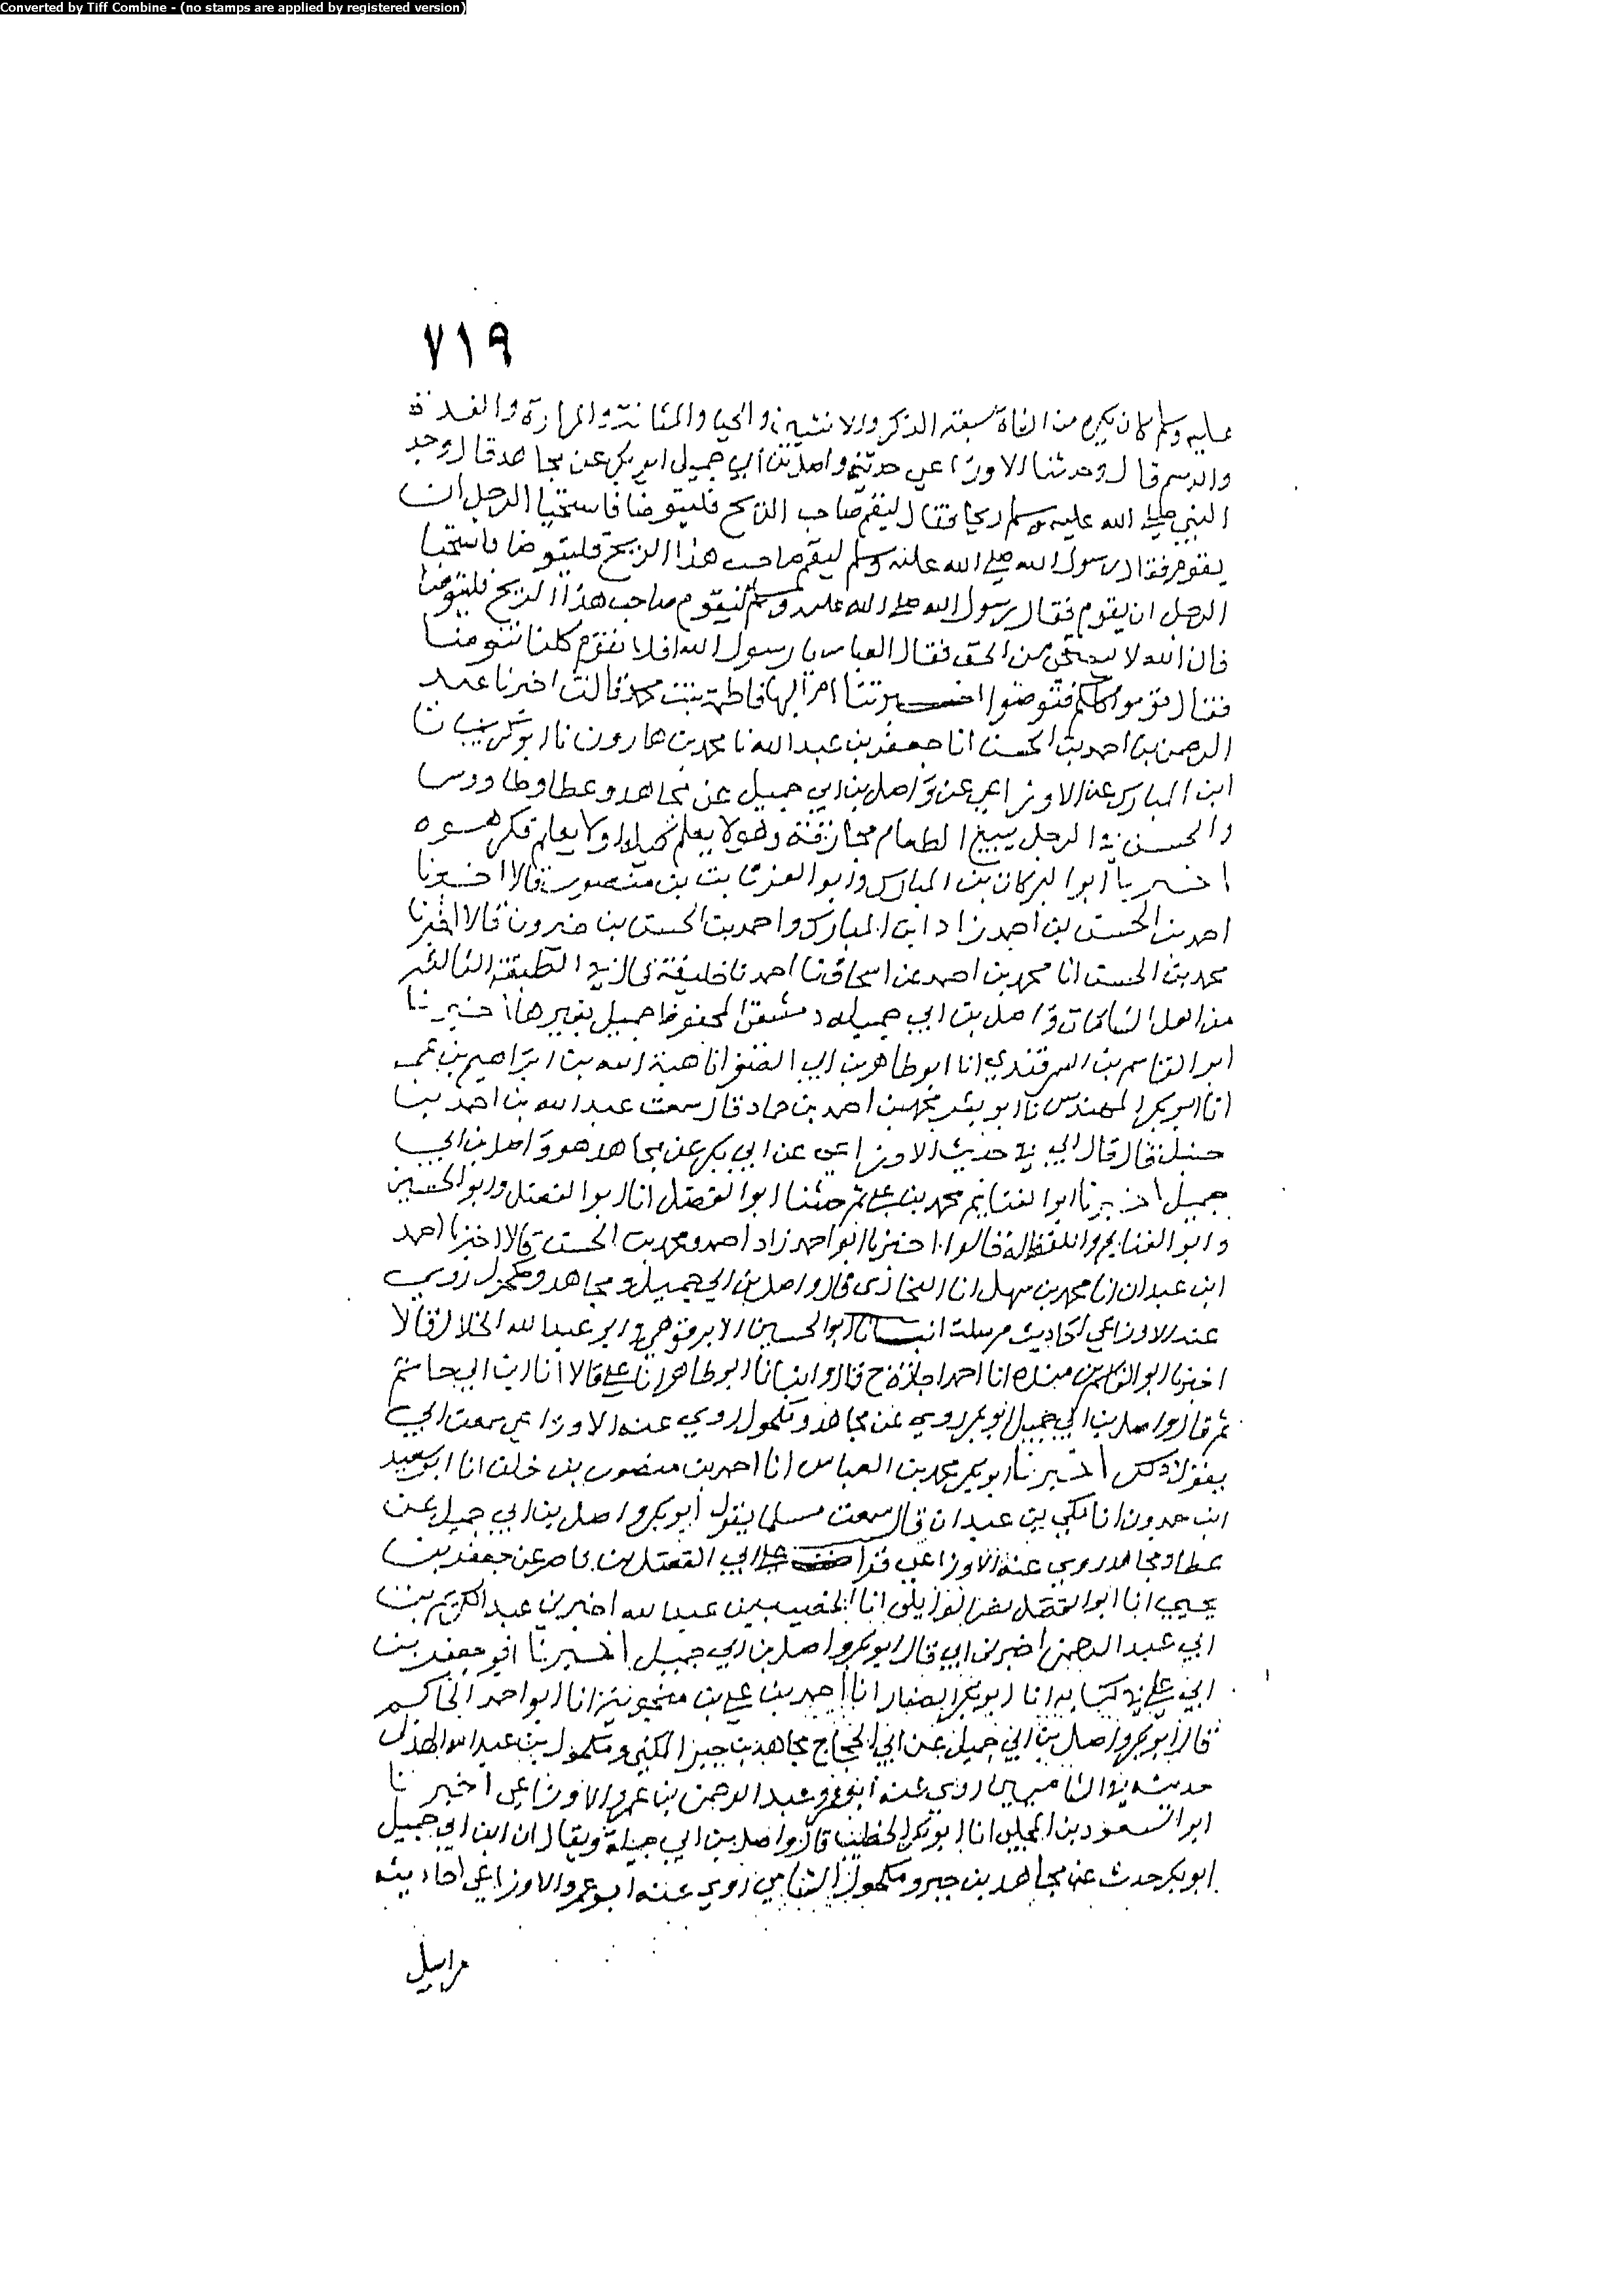 Converted by Tiff Combine - (no stamps are applied by registered version)
٧١٩
عليه وسلم كان يكره من الشاة سبعة الذكر والانثيين والحيا والمثانة والمرارة والغدة
والدم قال وحدثنا الاوزاعي حدثني واصل بن أبي جميل ابو بكر عن مجاهد قال وجد
النبي صلى الله عليه وسلم ريحا فقال ليقم صاحب الريح فليتوضا فاستحيا الرجل ان
يقوم فقال رسول الله صلى الله عليه وسلم ليقم صاحب هذا الريح فليتوضا فاستحيا
الرجل ان يقوم فقال رسول الله صلى الله عليه وسلم ليقوم صاحب هذا الريح فليتوضا
فان الله لا يستحي من الحق فقال العباس يا رسول الله افلا نقوم كلنا نتوضا
فقال قوموا كلكم فتوضوا اخبرتنا ام البها فاطمة بنت محمد قالت اخبرنا عبد
الرحمن بن احمد بن الحسن انا جعفر بن عبد الله نا محمد بن هارون نا ابو كريب نا
ابن المبارك عن الاوزاعي عن واصل بن ابي جميل عن مجاهد وعطا وطاووس
والحسن في الرجل يبيع الطعام مجازفة وهو لا يعلم كيله ولا يعلم فكرهوه
اخبرنا ابو البركات بن المبارك وابو العز ثابت بن منصور قالا اخبرنا
احمد بن الحسن بن احمد زاد ابن المبارك واحمد بن الحسن بن خيرون قالا اخبرنا
محمد بن الحسن انا محمد بن احمد بن اسحاق نا احمد نا خليفة قال في الطبقة الثالثة
من اهل الشامات واصل بن ابي جميلة دمشقي المحفوظ جميل بغير ها اخبرنا
ابو القاسم بن السمرقندي انا ابو طاهر بن ابي الصقر انا هبة الله بن ابراهيم بن عمر
انا ابو بكر المهندس نا ابو بشر محمد بن احمد بن حماد قال سمعت عبد الله بن احمد بن
حنبل قال قال ابي في حديث الاوزاعي عن ابي بكر عن مجاهد هو واصل بن ابي
جميل اخبرنا ابو الغنايم محمد بن علي ثم حدثنا ابو الفضل انا ابو الفضل وابو الحسين
وابو الغنايم واللفظ له قالوا اخبرنا ابو احمد زاد احمد ومحمد بن الحسن قالا اخبرنا احمد
ابن عبدان انا محمد بن سهل انا البخاري قال واصل بن ابي جميل ومجاهد ومكحول روى
عنه الاوزاعي احاديث مرسلة انبانا ابو الحسين الابرقوهي وابو عبد الله الخلال قالا
اخبرنا ابو القاسم بن منده انا احمد اجازة ح قال وانبانا ابو طاهر انا علي قالا انا ابن ابي حاتم
ثم قال واصل بن ابي جميل ابو بكر روى عن مجاهد ومكحول روى عنه الاوزاعي سمعت ابي
يقول ذلك اخبرنا ابو بكر محمد بن العباس انا احمد بن منصور بن خلف انا ابو سعيد
ابن حمدون انا مكي بن عبدان قال سمعت مسلما يقول ابو بكر واصل بن ابي جميل عن
عطا ومجاهد روى عنه الاوزاعي قرات على ابي الفضل بن ناصر عن جعفر بن
يحيى انا ابو نصر الوايلي انا الخصيب بن عبد الله اخبرني عبد الكريم بن
ابي عبد الرحمن اخبرني ابي قال ابو بكر واصل بن ابي جميل اخبرنا ابو جعفر بن
ابي علي في كتابه انا ابو بكر الصفار انا احمد بن علي بن منجويه انا ابو احمد الحاكم
قال ابو بكر واصل بن ابي جميل عن ابي الحجاج مجاهد بن جبر المكي ومكحول بن عبد الله الهذلي
حديثه في الشاميين روى عنه ابو عمرو عبد الرحمن بن عمرو الاوزاعي اخبرنا
ابو السعود بن المجلي انا ابو بكر الخطيب قال واصل بن ابي جميلة ويقال ان ابن ابي جميل
ابو بكر حدث عن مجاهد بن جبر ومكحول الشامي روى عنه ابو عمرو الاوزاعي احاديثه
مراسيل